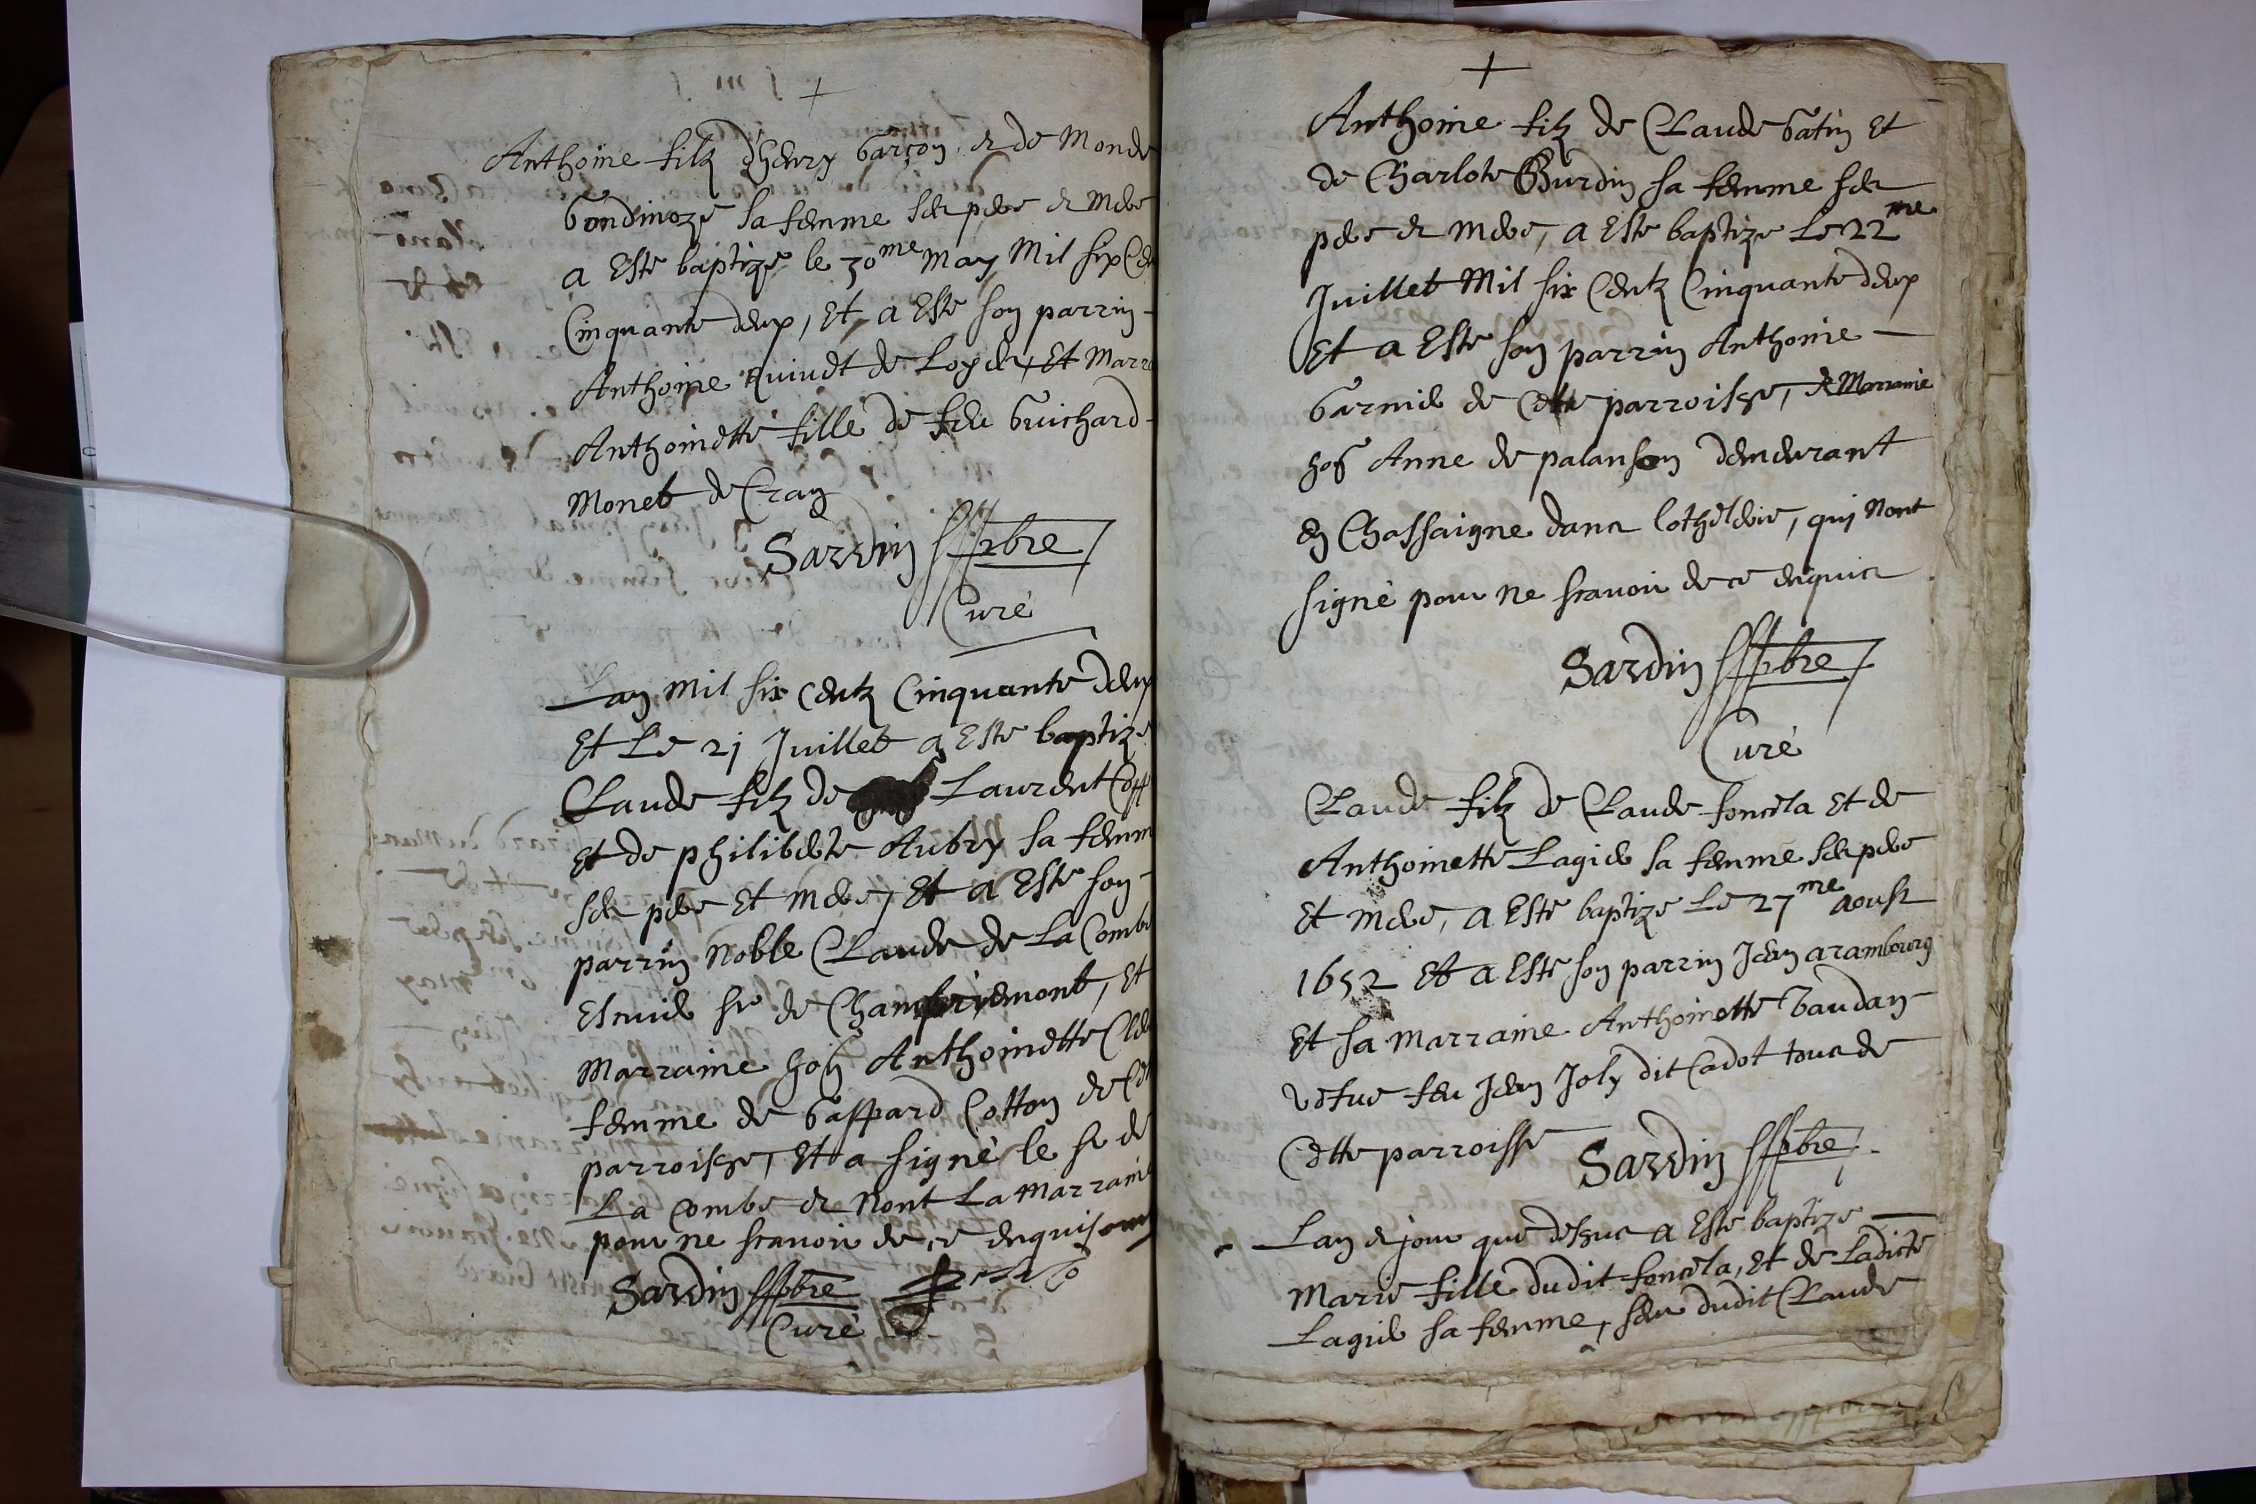 Anthoine filz d'henry Garçon & de Monde
Gondinoze sa femme ses pere & mere
a Este baptize le 30me May Mil six Cen
Cinquante deux, Et a Este son parrin
Anthoine de Loyer, Et Marr
Anthoinette fille de feu Guichard
Monet de Cran
Sardin pbre
Curé
Lan Mil six Centz Cinquante deux
Et Le 21 Juillet a Este baptize
Claude filz de Laurent
Et de philiberte Aubry sa femm
ses pere Et mere, Et a Este son
parrin Noble Claude de La Combe
Escuier sr de Et
Marraine hon Anthoinette
femme de Gaspard Cotton de
parroisse, Et a signé le sr de
La Combe & Nont La Marraine
pour ne scavoir de ce enquis
Sardin pbre
Curé
Anthoine filz de Claude Gatin Et
de Charlote Burdin sa femme ses
pere & mere, a Este baptize Le 22me
Juillet Mil six Centz Cinquante deux
Et a Este son parrin Anthoine
Garnier de Cette parroisse, & Marraine
hon Anne de palanson demeurant
en Chassaigne dans qui Nont
signé pour ne scavoir de ce enquis
Sardin pbre
Curé
Claude filz de Claude foncela Et de
Anthoinette Lagier sa femme ses pere
Et mere, a Este baptize Le 27me aoust
1652 Et a Este son parrin Jean arambourg
Et sa Marraine Anthoinette Baudan
vefve feu Jean Joly dit Cadot tous de
Cette parroisse Sardin pbre
Lan & jour que dessus a Este baptize
Marie fille dudit foncela, Et de Ladicte
Lagier sa femme, seur dudit Claude